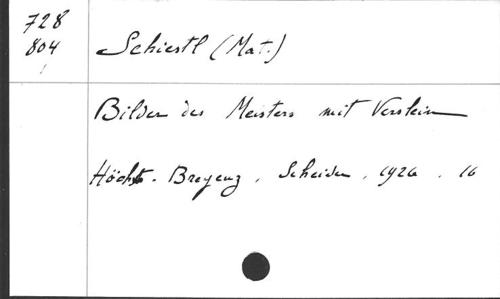 728
804
Schiestl (Mat.)
Bilder des Meisters mit Verslein
Höchst-Bregenz, Scheider, 1926. 16